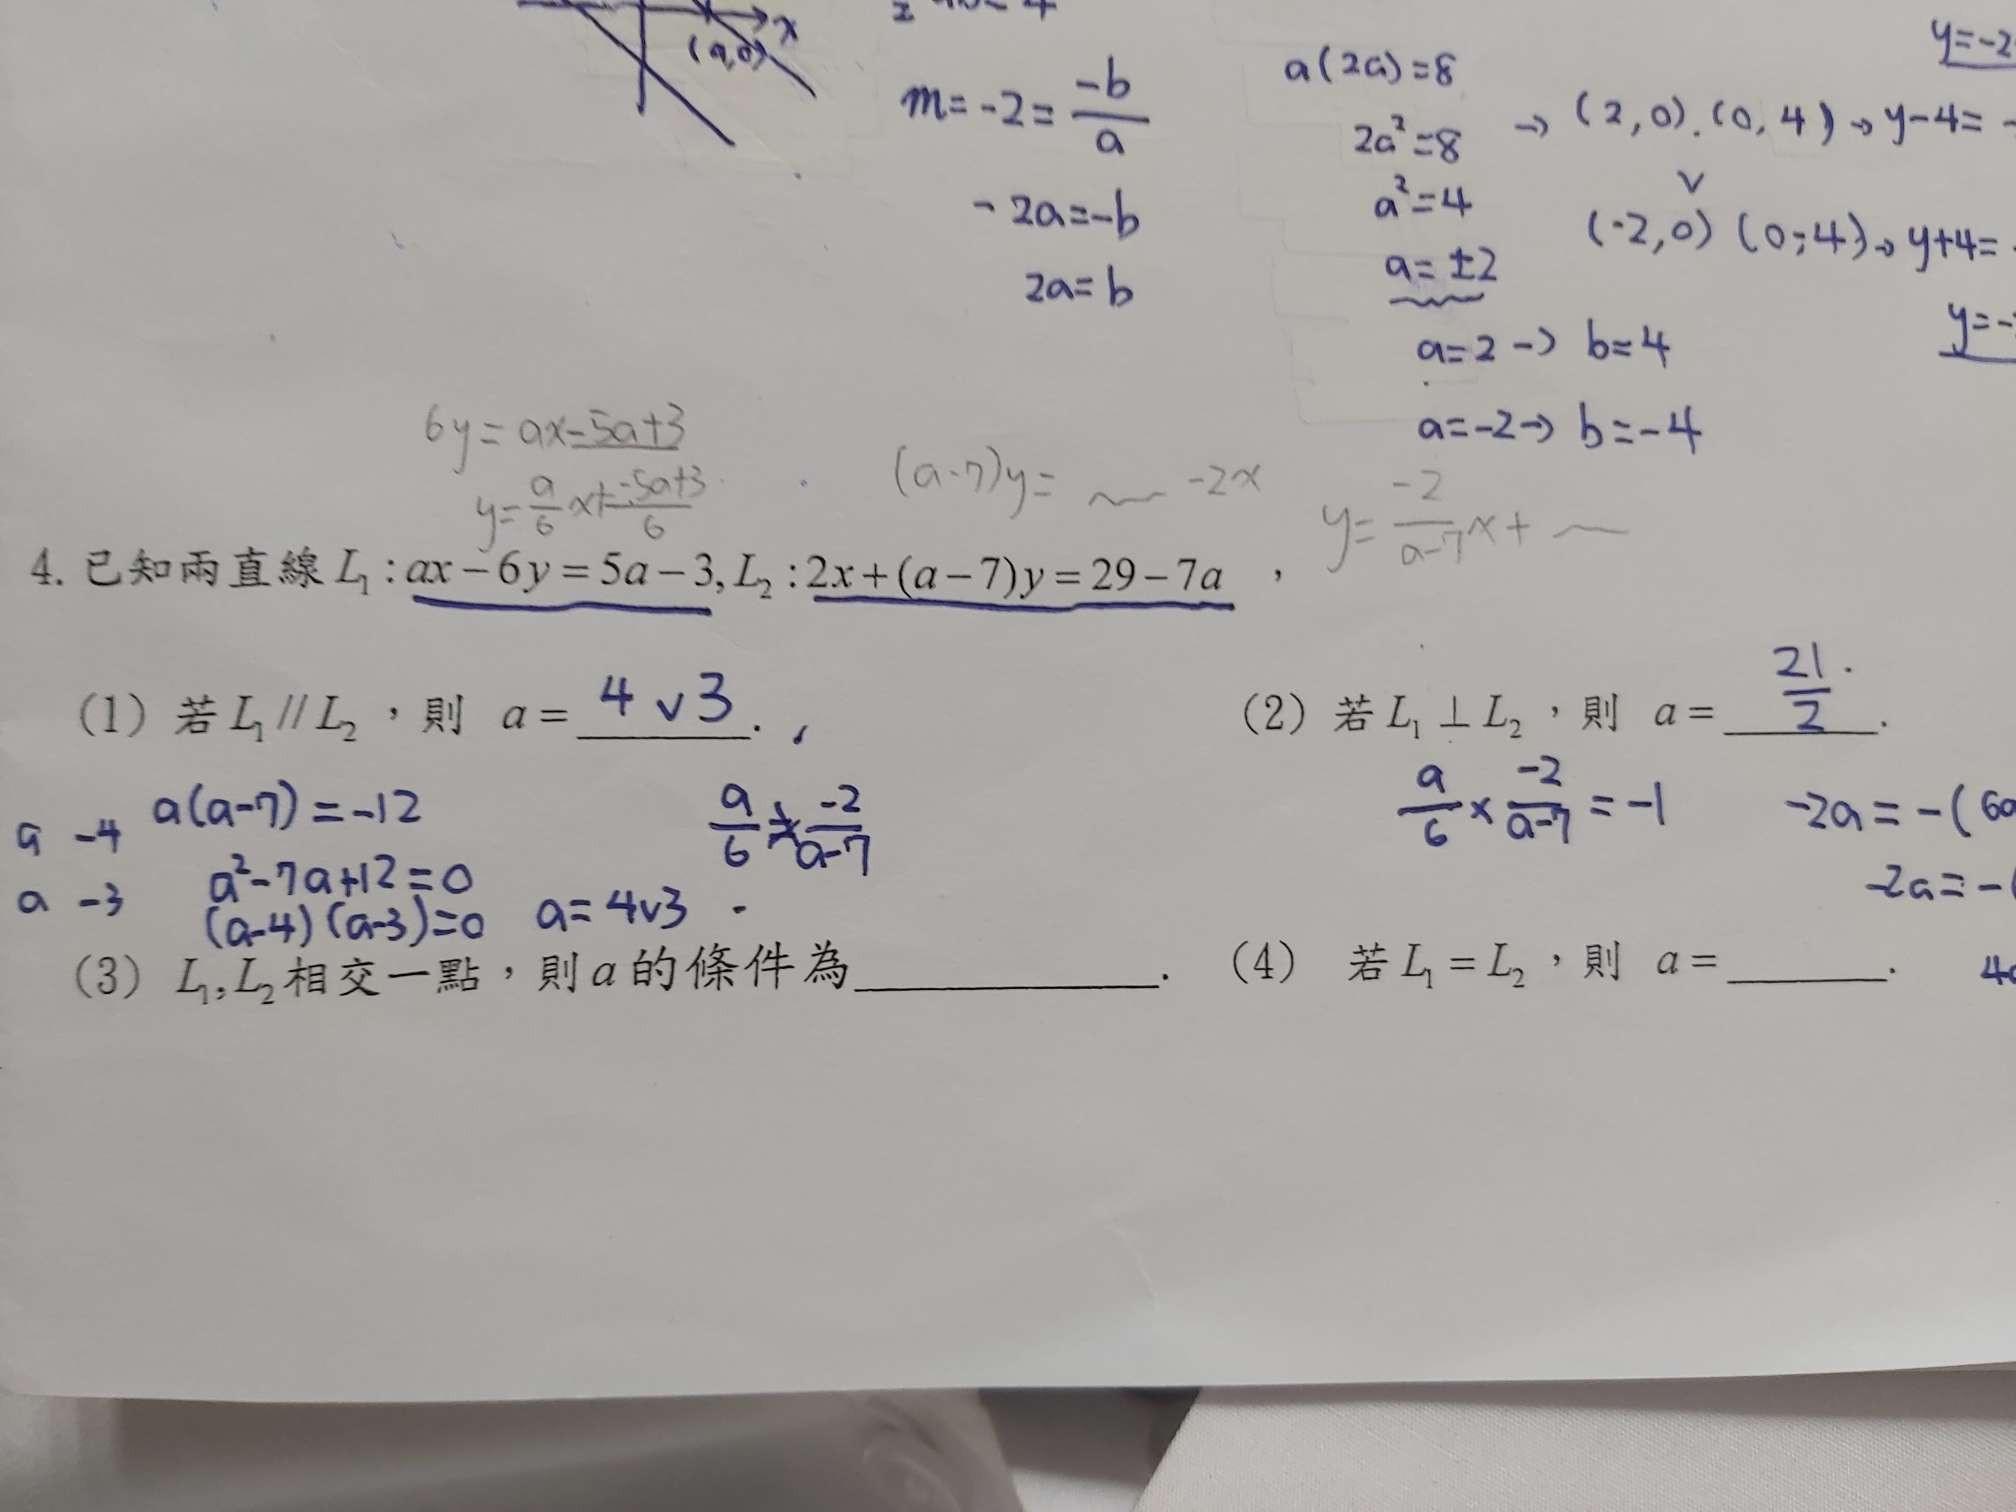 x
(a,0)
m=-2=\frac{-b}{a}
-2a=-b
2a=b
a(2a)=8
2a²=8
a²=4
a=±2
a=2→ b=4
a=-2→ b=-4
→ (2,0).(0,4)→y-4=
∨
(-2,0) (0,-4)→y+4=
y=-2
y=-
6y=ax-5a+3
y=\frac{a}{6}x+\frac{-5a+3}{6}
(a-7)y= -2x
y=\frac{-2}{a-7}x+
4. 已知兩直線 L₁:ax-6y=5a-3,L₂:2x+(a-7)y=29-7a ,
(1) 若 L₁//L₂,則 a= 4∨3.
(2) 若 L₁⊥L₂,則 a= \frac{21}{2}.
a -4 a(a-7)=-12
a -3 a²-7a+12=0
(a-4)(a-3)=0 a=4∨3
\frac{a}{6} \frac{-2}{a-7}
\frac{a}{6}×\frac{-2}{a-7}=-1
-2a=-(6a
-2a=-(
(3) L₁,L₂相交一點,則a的條件為____________.
(4) 若 L₁=L₂,則 a=______.
4a